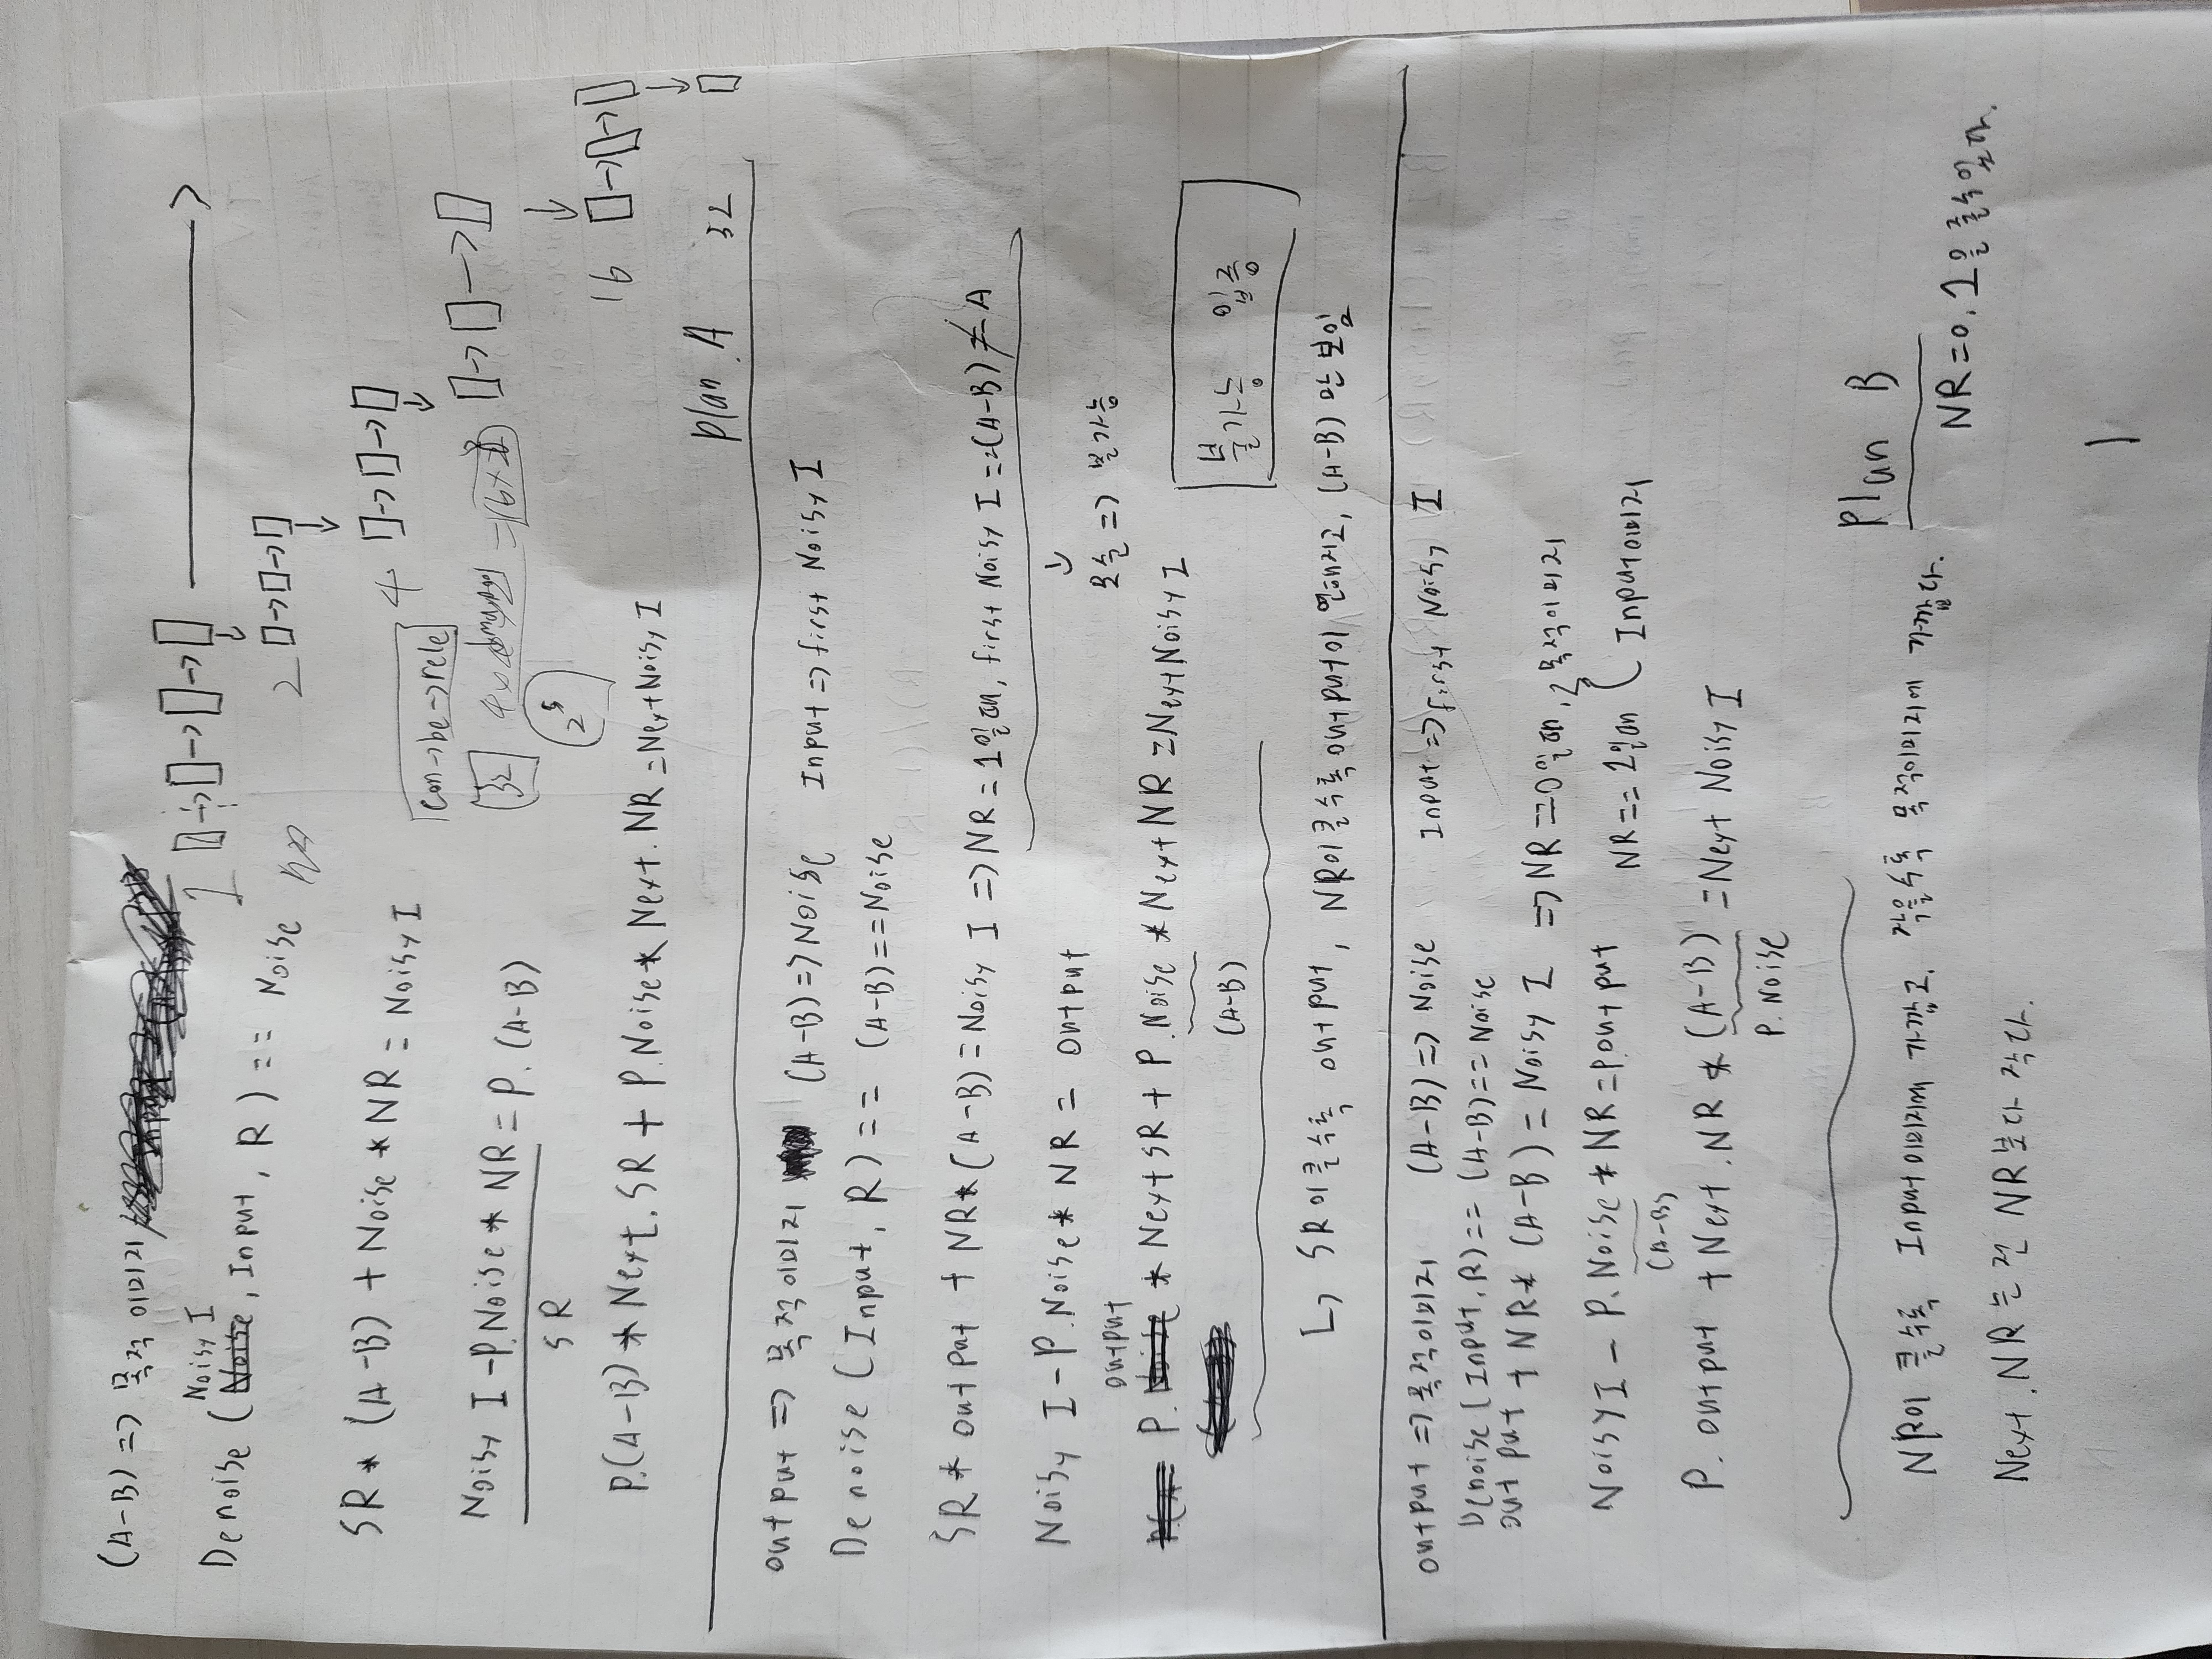 (A-B) => 목적 이미지
Noisy I
Denoise ( Noise, Input, R ) == Noise
SR * (A-B) + Noise * NR = Noisy I
Noisy I - P.Noise * NR = P. (A-B)
SR
P.(A-B) * Next. SR + P.Noise * Next. NR = Next Noisy I
1
2
4
con->be->rele
32
2⁵
16
32
plan A
output => 목적이미지 (A-B) => Noise Input => first Noisy I
Denoise ( Input, R ) == (A-B) == Noise
SR * output + NR * (A-B) = Noisy I => NR = 1일때, first Noisy I == (A-B) ≠ A
Noisy I - P.Noise * NR = output
모순 => 불가능
output
P. Noise * Next SR + P.Noise * Next NR = Next Noisy I
(A-B)
불가능 입증
SR이 클수록 output, NR이 클수록 output이 연해지고, (A-B) 만 보임
output => 목적이미지 (A-B) => Noise Input => first Noisy I
Denoise ( Input, R ) == (A-B) == Noise
output + NR * (A-B) = Noisy I => NR == 0일때, 목적이미지
Noisy I - P. Noise * NR = P output NR == 1일때 Input이미지
(A-B)
P. output + Next .NR * (A-B) = Next Noisy I
P. Noise
Plan B
NR이 클수록 Input이미지에 가깝고, 작을수록 목적이미지에 가깝다.
NR=0, 1을 줄수있다.
Next .NR는 전 NR보다 작다.